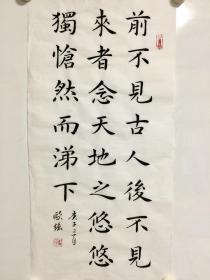 前不見古人後不見
來者念天地之悠悠
獨愴然而涕下
庚子三月